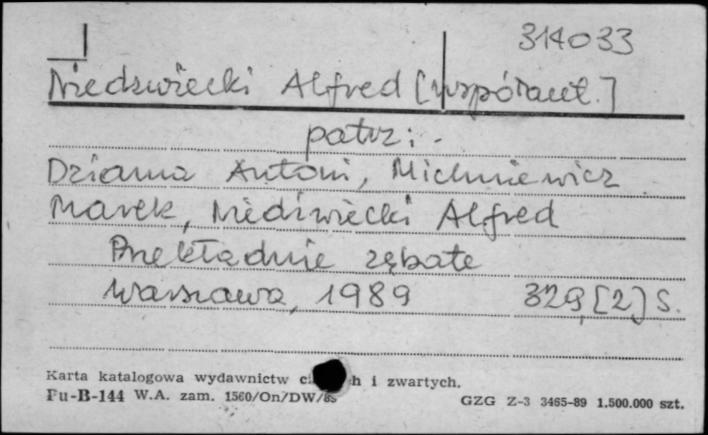 314033
Niedzwiecki Alfred [współaut.]
patrz:
Dziama Antoni, Michniewicz
Marek, Niedźwiecki Alfred
Przekładnie zębate
Warszawa, 1989 329,[2] s.
Karta katalogowa wydawnictw h i zwartych.
Pu-B-144 W.A. zam. 1560/On/DW/
GZG Z-3 3465-89 1.500.000 szt.